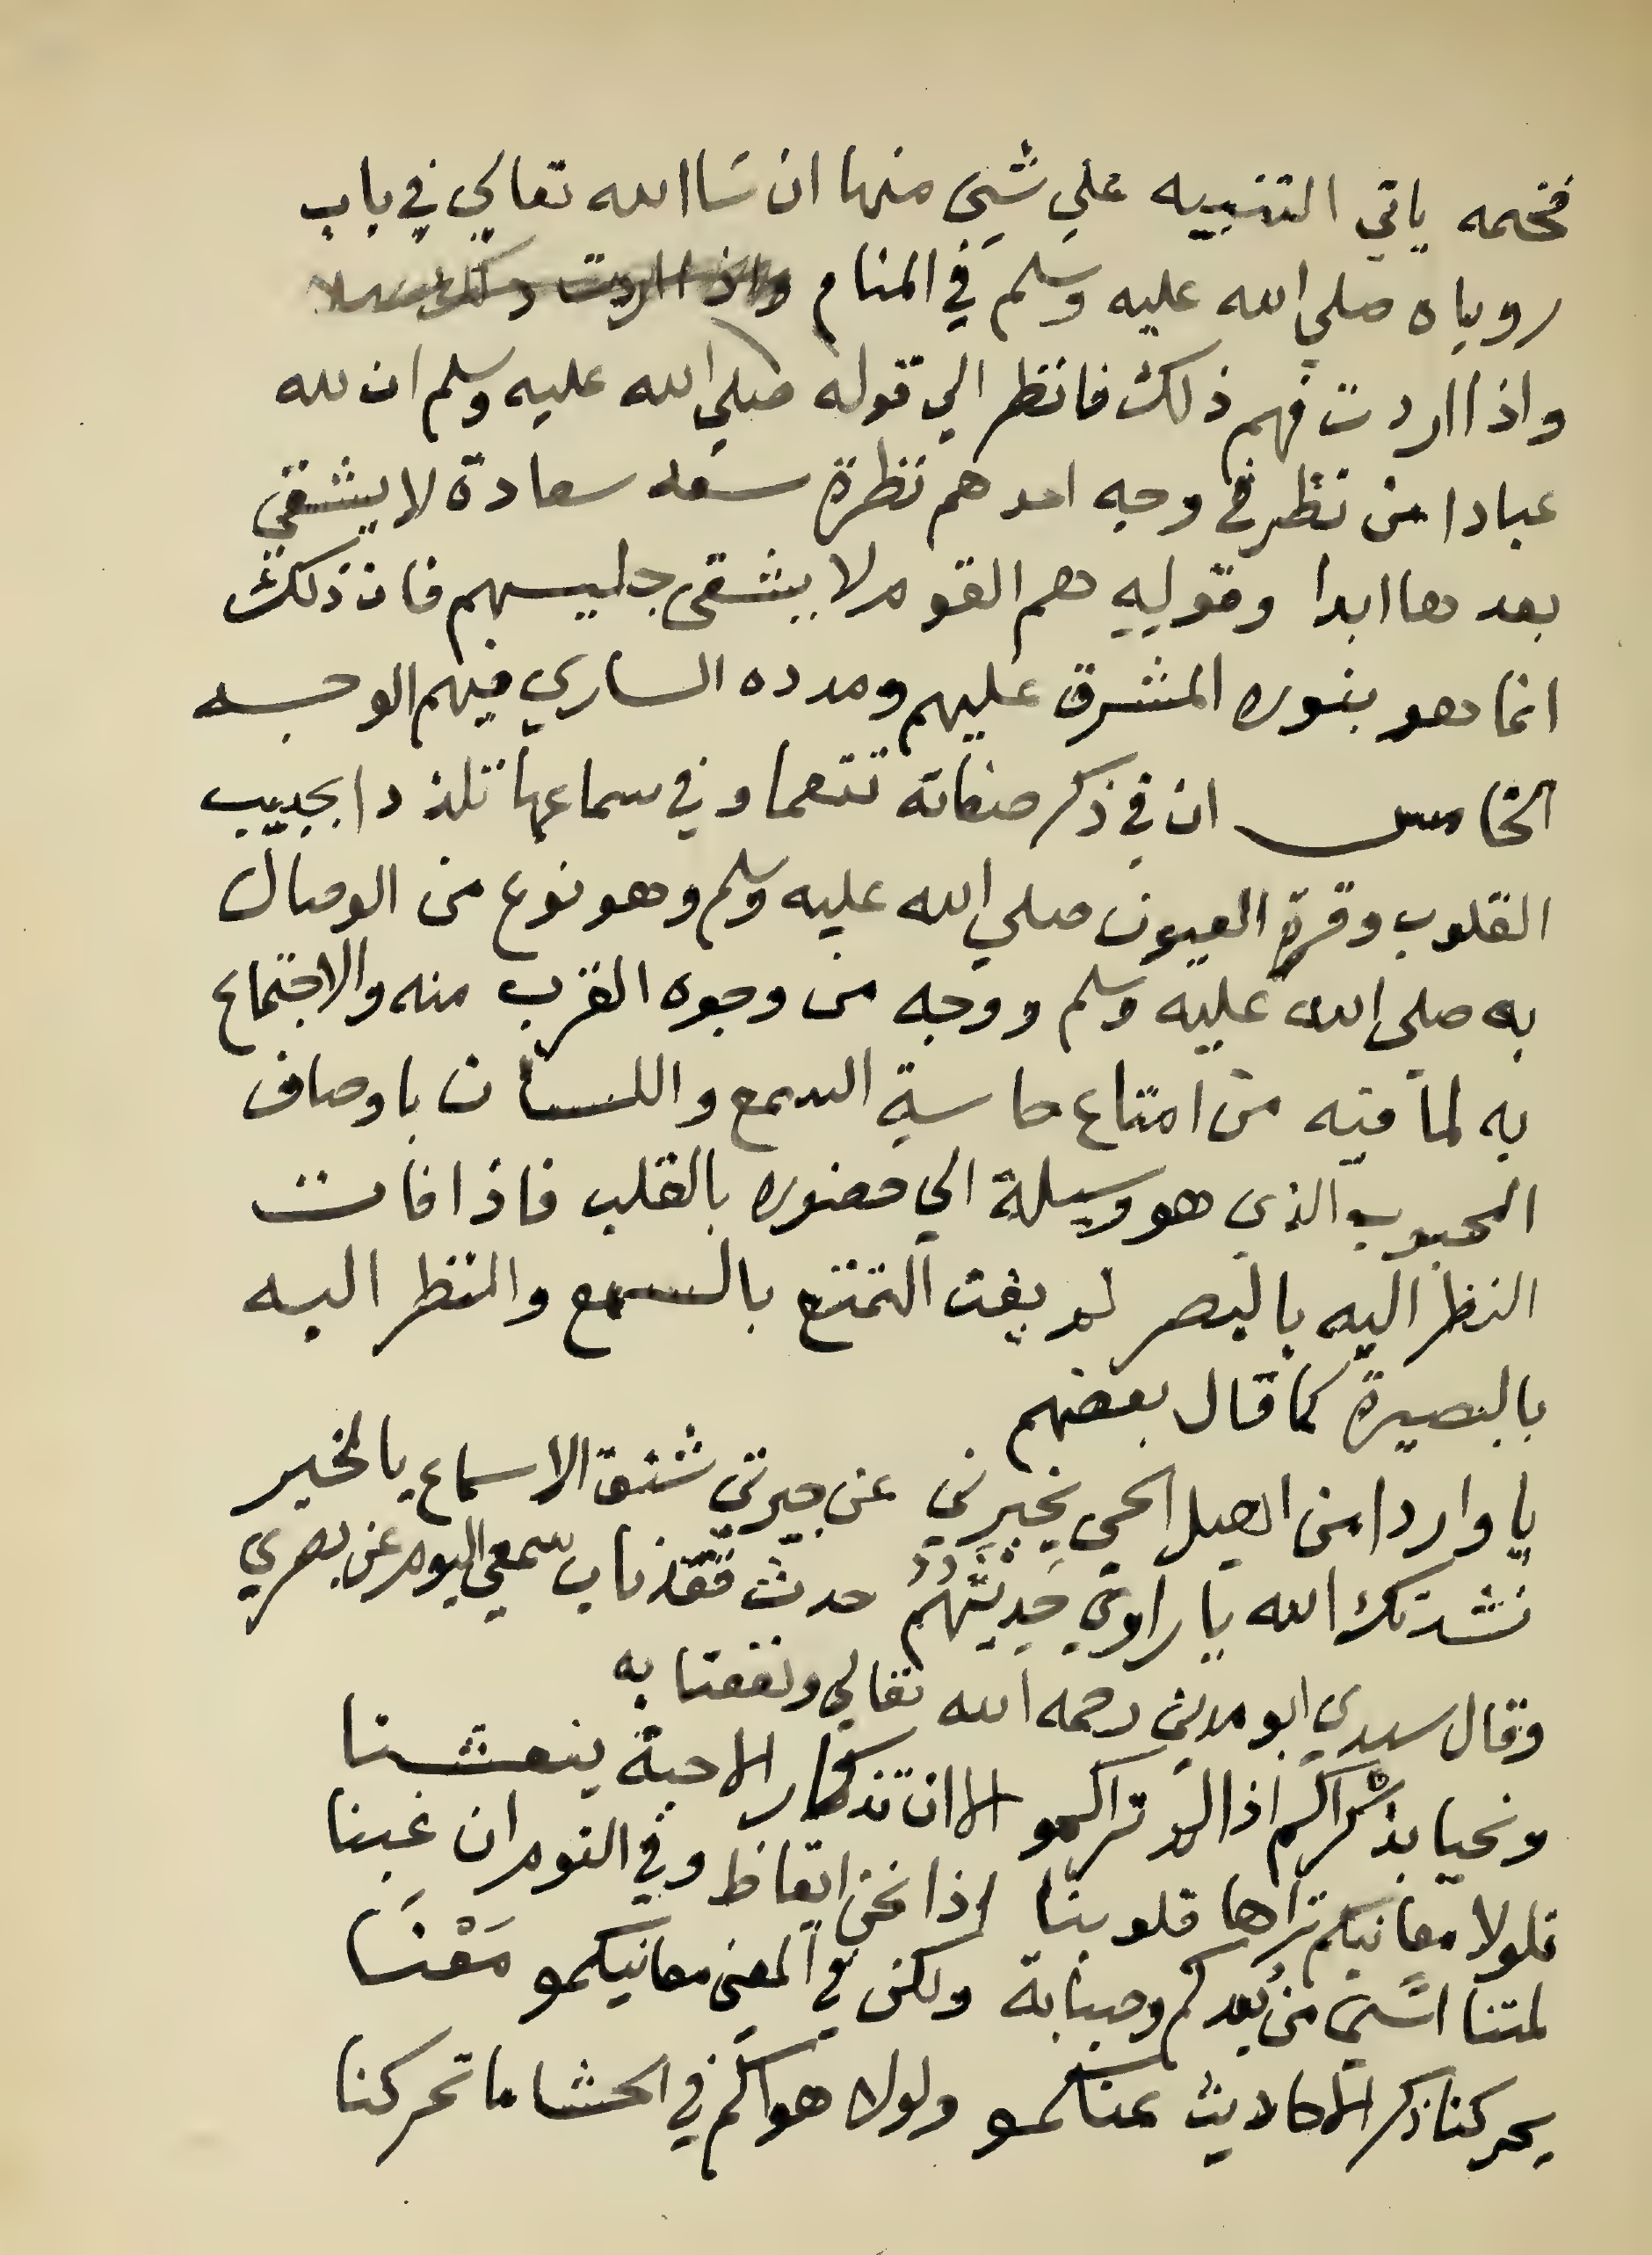 فخمه ياتي التنبيه علي شيىء منها ان شاالله تعالي في باب
روياه صلي الله عليه وسلم في المنام واذا اردت ذلك
واذا اردت فهم ذلك فانظر الي قوله صلي الله عليه وسلم ان لله
عبادا من نظر في وجه احدهم نظرة سعد سعادة لا يشقي
بعدها ابدا وقوله هم القوم لا يشقى جليسهم فان ذلك
انما هو بنوره المشرق عليهم ومدده الساري فيهم الوجه
الخامس ان في ذكر صفاته تنعما وفي سماعها تلذذا بحبيب
القلوب وقرة العيون صلي الله عليه وسلم وهو نوع من الوصال
به صلى الله عليه وسلم ووجه من وجوه القرب منه والاجتماع
به لما فيه من امتاع حاسة السمع واللسان باوصاف
المحبوب الذي هو وسيلة الي حضوره بالقلب فاذا فات
النظر اليه بالبصر لم يفت التمتع بالسمع والنظر اليه
بالبصيرة كما قال بعضهم
يا واردا من اهيل الحي يخبرني عن جيرتي شنف الاسماع بالخبر
نشدتك الله يا راوي حديثهم حدث فقد ناب سمعي اليوم عن بصري
وقال سيدي ابو مدين رحمه الله تعالي ونفعنا به
ونحيا بذكراكم اذا لم نراكمو الا ان تذكار الاحبة ينعشنا
فلولا معانيكم تراها قلوبنا اذا نحن ايقاظ وفي النوم ان غبنا
لمتنا اسي من بعدكم وصبابة ولكن في المعنى معانيكمو مَعْنَا
يحركنا ذكر الاحاديث عنكمو ولولا هواكم في الحشا ما تحركنا